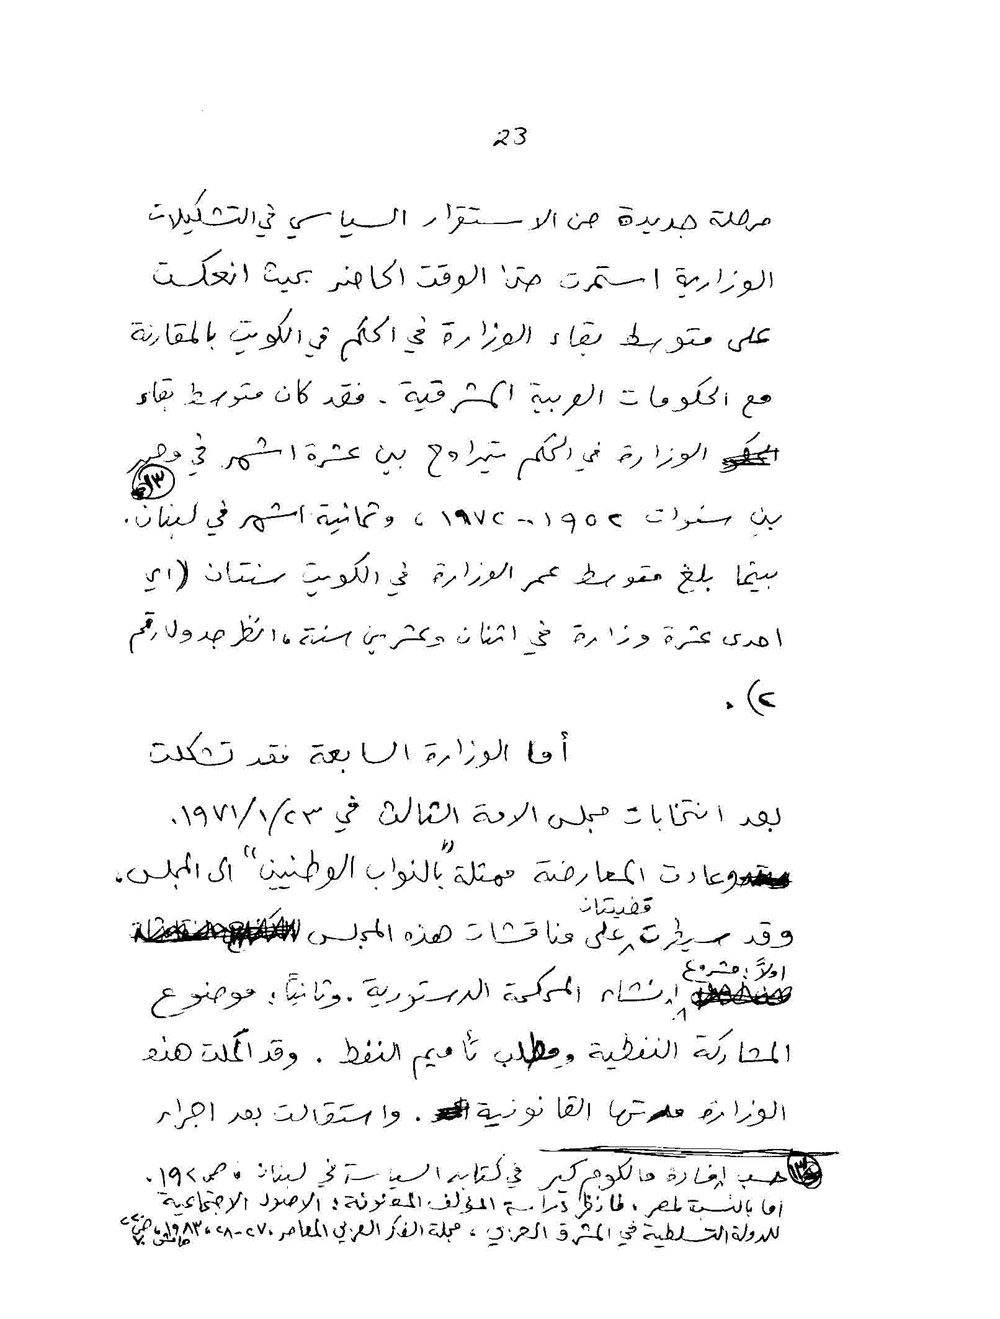 23
مرحلة جديدة من الاستقرار السياسي في التشكيلات
الوزارية استمرت حتى الوقت الحاضر بحيث انعكست
على متوسط بقاء الوزارة في الحكم في الكويت بالمقارنة
مع الحكومات العربية المشرقية . فقد كان متوسط بقاء
الوزارة في الحكم يتراوح بين عشرة اشهر في مصر
بين سنوات ١٩٥٢ - ١٩٧٢ ، وثمانية اشهر في لبنان . (١٣)
بينما بلغ متوسط عمر الوزارة في الكويت سنتان (اي
احدى عشرة وزارة في اثنان وعشرين سنة ، انظر جدول رقم
٢) .
أما الوزارة السابعة فقد تشكلت
بعد انتخابات مجلس الامة الثالث في ١٩٧١/١/٢٣ .
وعادت المعارضة ممثلة "بالنواب الوطنيين" الى المجلس .
وقد سيطرت قضيتان على مناقشات هذه المجلس
اولاً : مشروع إنشاء المحكمة الدستورية . وثانياً : موضوع
المشاركة النفطية ومطلب تأميم النفط . وقد اكملت هذه
الوزارة مدتها القانونية . واستقالت بعد اجراء
(١٣) حسب إفادة مالكوم كير في كتابه السياسة في لبنان ، ص ١٩٢ .
أما بالنسبة لمصر ، فانظر دراسة المؤلف المعنونة : الاصول الاجتماعية
للدولة التسلطية في المشرق العربي ، مجلة الفكر العربي المعاصر ٢٧-٢٨ ، ١٩٨٣ ، ص هامش ٧٠